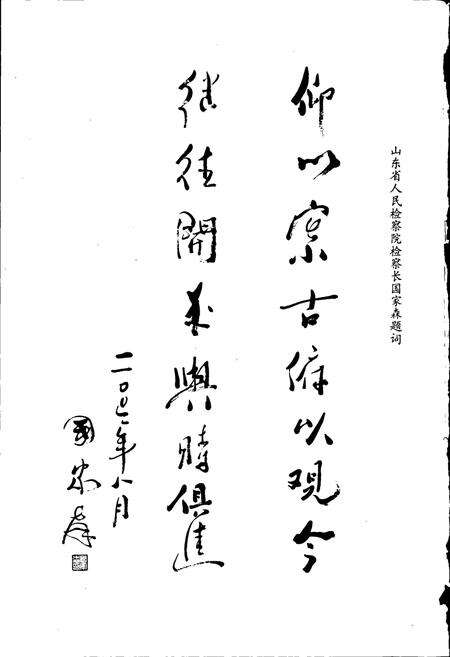 山东省人民检察院检察长国家森题词
仰以察古俯以观今
继往開来與時俱進
二〇 年八月
國家森